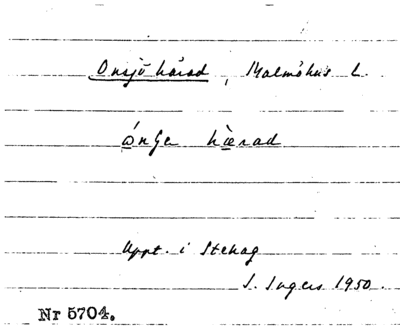 Onsjö härad, Malmöhus l.
härad
Uppt. i Stehag
S. Ingers 1950.
Nr 5704.